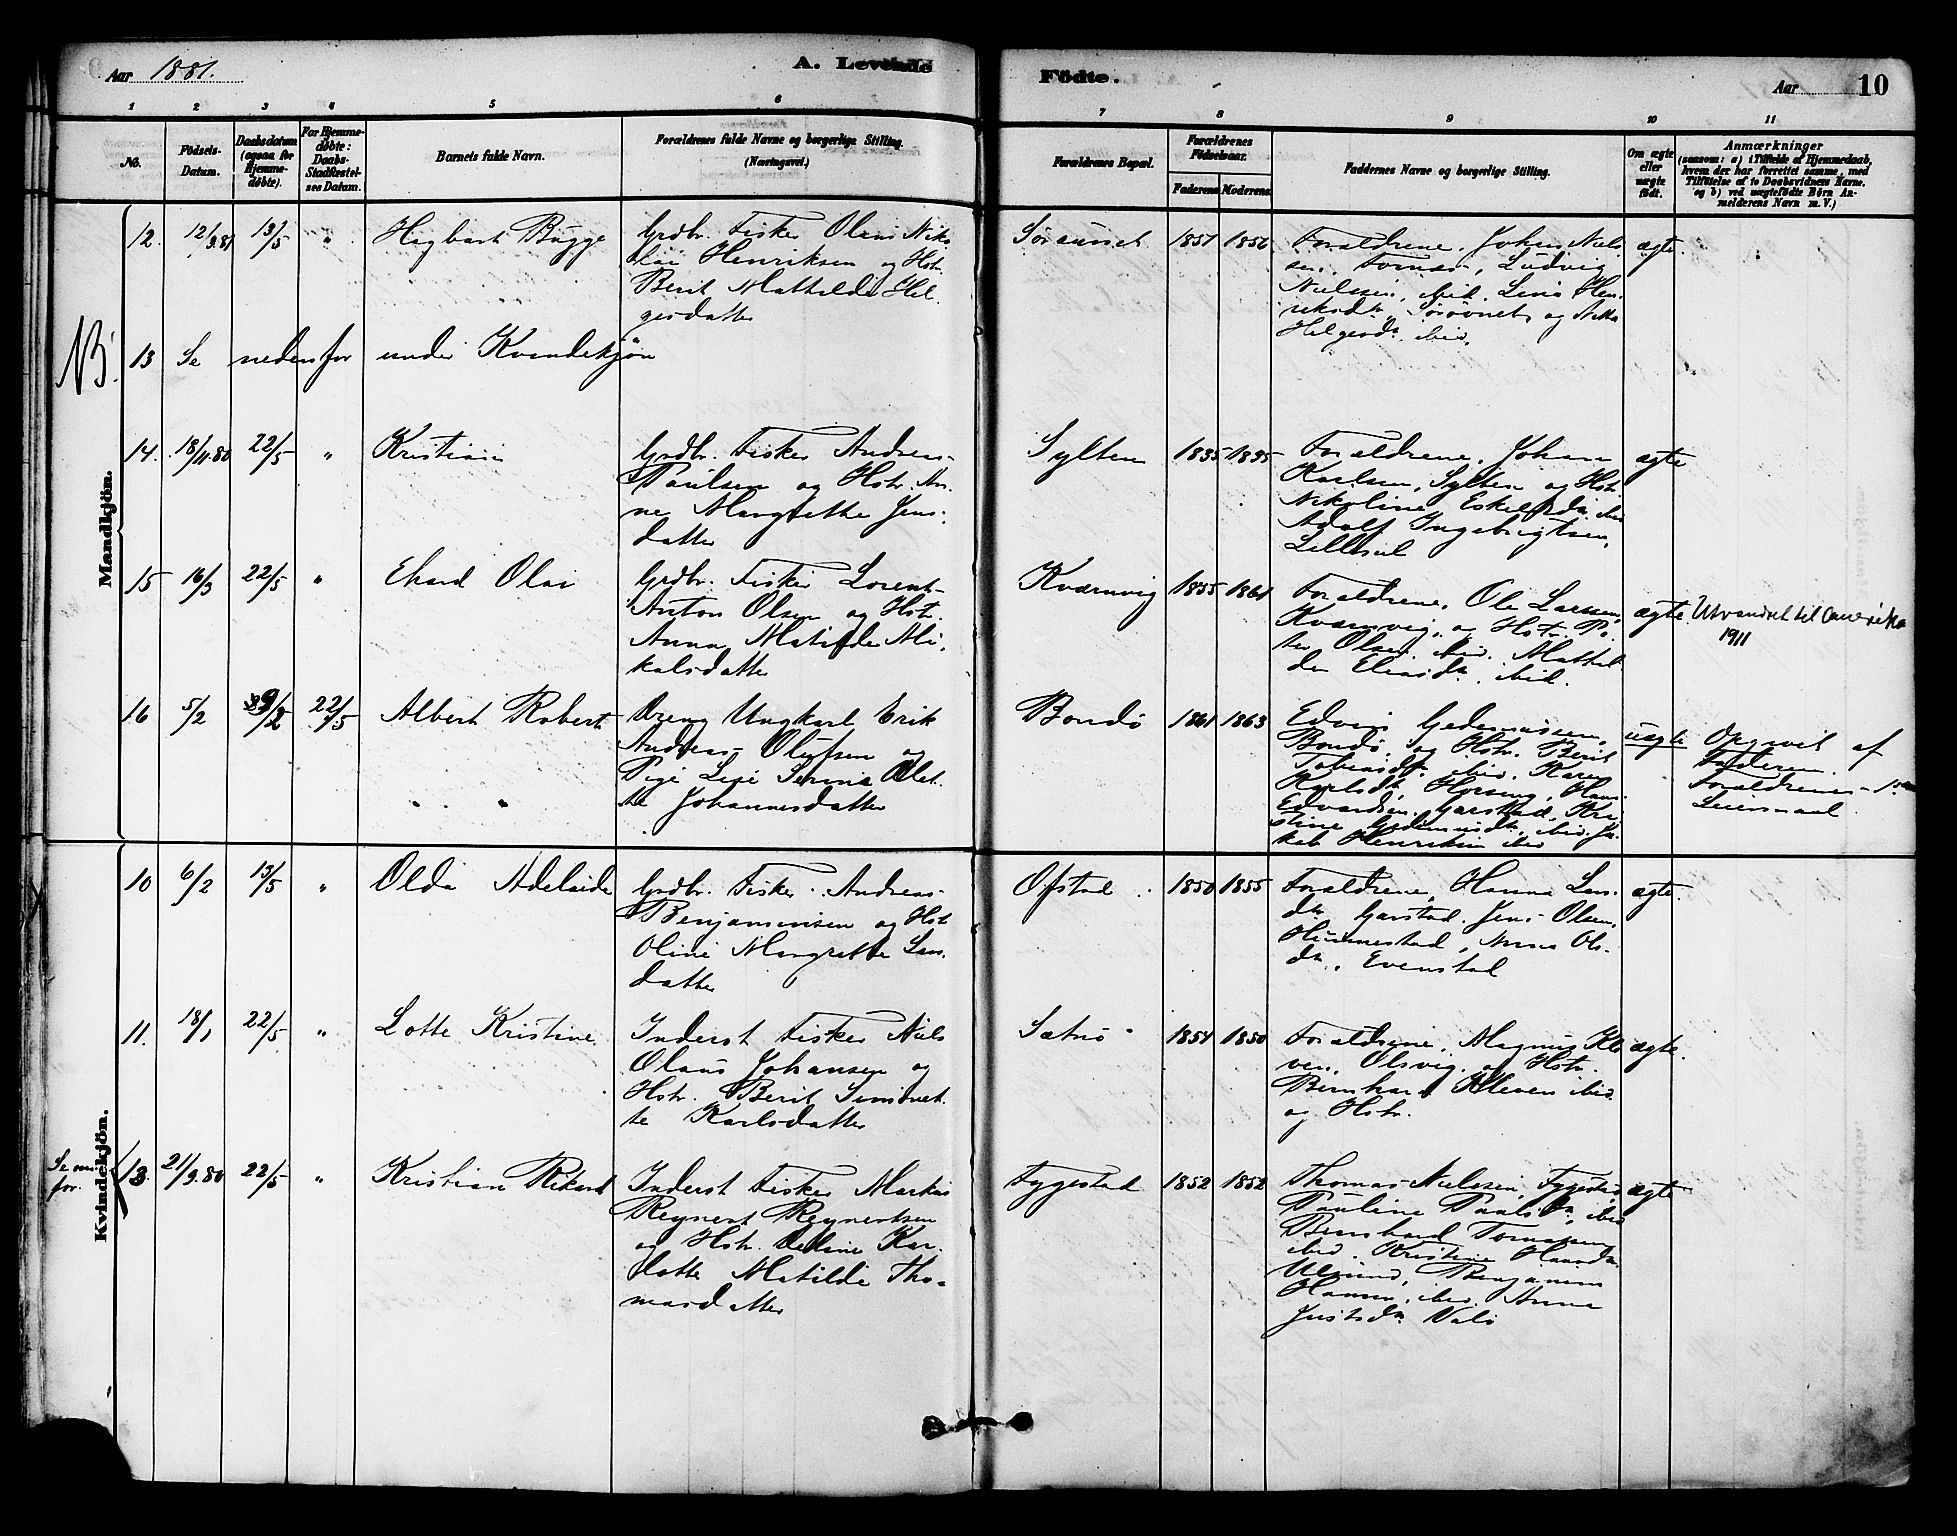 Aar 1881.
A. Levende
Födte.
Aar
10
1 2 3 4 5 6 7 8 9 10 11
No.
Födsels-
Datum.
Daabsdatum
(ogsaa for
Hjemme-
döbte).
For Hjemme-
döbte:
Daabs-
Stadfæstel-
ses Datum.
Barnets fulde Navn.
Forældrenes fulde Navne og borgerlige Stilling.
(Næringsvei.)
Forældrenes Bopæl.
Forældrenes
Födselsaar.
Faderens Moderens
Faddernes Navne og borgerlige Stilling.
Om ægte
eller
uægte
födt.
Anmærkninger
(saasom: a) i Tilfælde af Hjemmedaab,
hvem der har forrettet samme, med
Tilföielse af to Daabsvidners Navne,
og b) ved uægtefödte Börn An-
melderens Navn m. V.)
Mandkjön.
12. 12/3.81 13/5 " Hagbart Bugge
Grdbr. Fisker Olaus Niko
lai Henriksen og Hstr.
Berit Mathilde Hel.
gesdatter
1857 1856
Forældrene. Johan Niels
sen, Ludvig
Nielssen, ibid.
og
Helgesdr. ibid.
ægte.
NB.
13 Se nedenfor under Kvindekjön
14. 18/11.80 22/5 " Kristian
Grdbr. Fisker Andreas
Paulsen og Hstr. An-
ne Margrethe Jens-
datter
Sylten
1835 1835
Forældrene. Johan
Karlsen, Sylten og Hstr.
Nikoline
Adolf Ingebrigtsen,
ægte
15 16/3 22/5 " Ekard Olai
Grdbr. Fisker Lorents
Anton Olsen og Hstr.
Anna Matilde Mi-
kalsdatter
Kværnvig
1855 1861
Forældrene. Ole Larssen,
Kværnvig, og Hstr. Pe
ter Olsen ibid. Mathil
de Eliasdr. ibid.
ægte.
Utvandret til Amerika
1911
16 5/2 9/2 22/5 Albert Robert
Dreng Ungkarl Erik
Andreas Olufsen og
Pige
te Johannesdatter
Bondö
1861 1863
Edvin
Bondö, og Hstr. Berit
Tobiasdr. ibid. Karen
Karlsdr.
Edvardsen, Garstad, Kri
stine ibid. Ja
kob Henriksen ibid
uægte
Opgavit af
Faderen.
Forældrenes 1ste
Leiermaal
Kvindekjön.
10 6/2 13/5 " Olda Adelaide
Grdbr. Fisker Andreas
Benjaminsen og Hstr
Oline Margrethe Lars-
datter
Ofstad
1850 1855
Forældrene, Hanna Lars-
dr. Garstad. Jens Olsen,
Himmestad, Anna Ols-
dr., Evenstad
ægte.
11. 18/1 22/5 " Lotte Kristine
Inderst Fisker Niels
Olaus Johansen og
Hstr. Berit Simonet-
te Karlsdatter
1854 1850
Forældrene, Magnus Kle
ven, Olsvig, og Hstr.
Bernhard Kleven ibid.
og Hstr.
ægte.
13. 21/9.80 22/5 " Kristian Rikard
Inderst Fisker Markus
Reynert Reynertsen
og Hstr.
Matilde Tho-
masdatter
Fyggestad
1852 1852
Thomas Nielssen, Fyggestad,
Pauline Paulsdr., ibid
Bernhard Tomassen
ibid. Kristine Hansdr.
Benjamin
Hansen, ibid. Anna
Justsdr. Valö
ægte